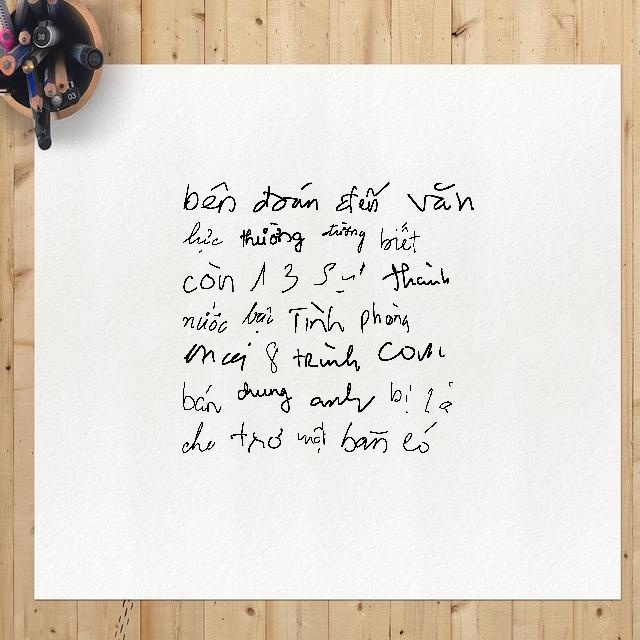 bên đoán đến văn
lực thường tường biết
còn 1 3 sự thành
nước bại Tình phòng
mai 8 trình com
bán chung anh bị là
cho trơ một bản có